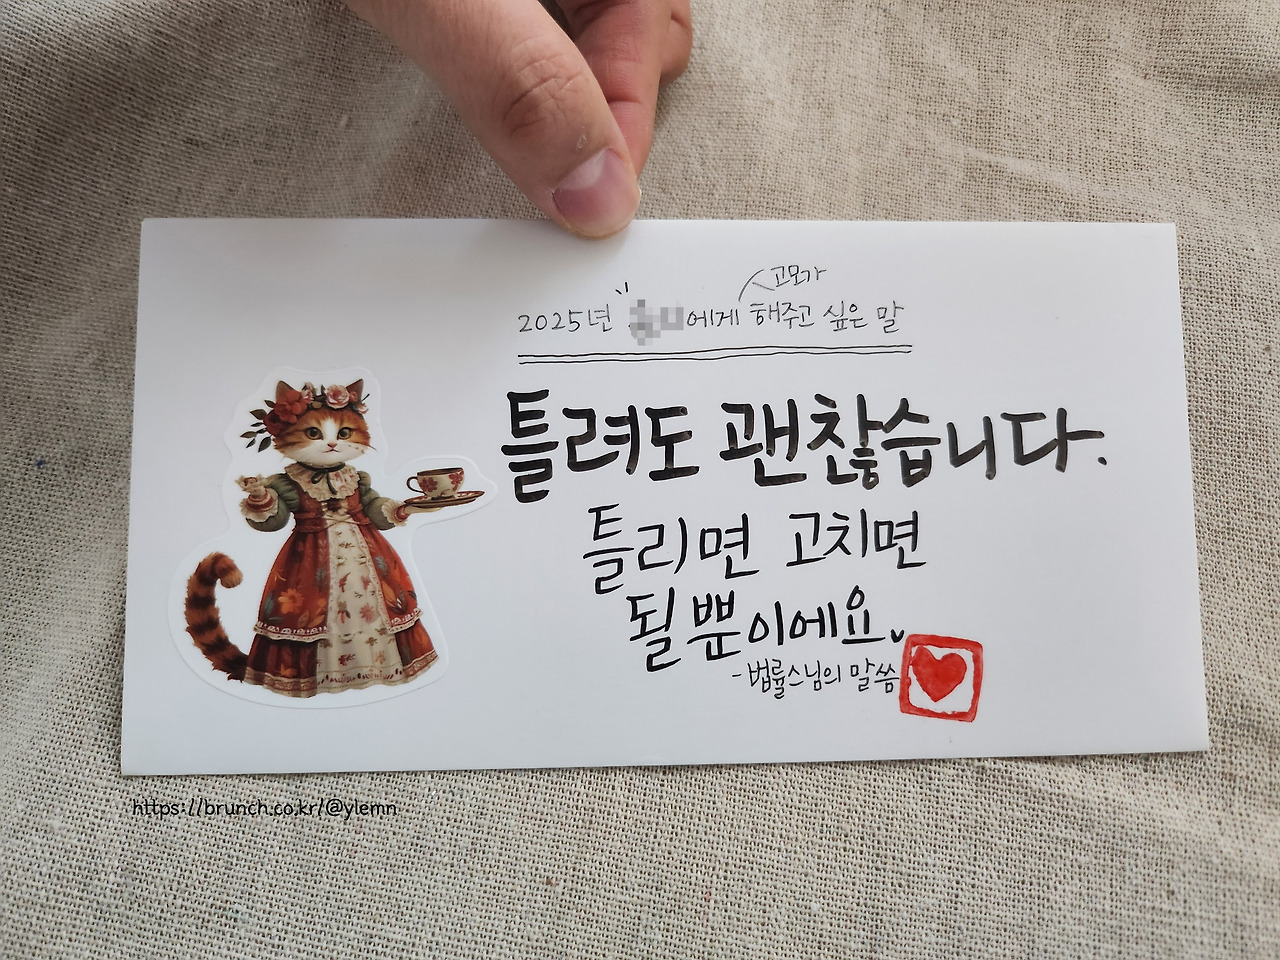 고모가
2025년 에게 해주고 싶은 말
틀려도 괜찮습니다.
틀리면 고치면
될 뿐이에요.
-법륜스님의 말씀
https://brunch.co.kr/@ylemn